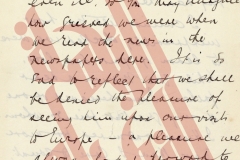 how grieved we were when
we read the news in the
newspapers here. It is so
sad to reflect that we shall
be denied the pleasure of
seeing him upon our visits
to Europe, — a pleasure we